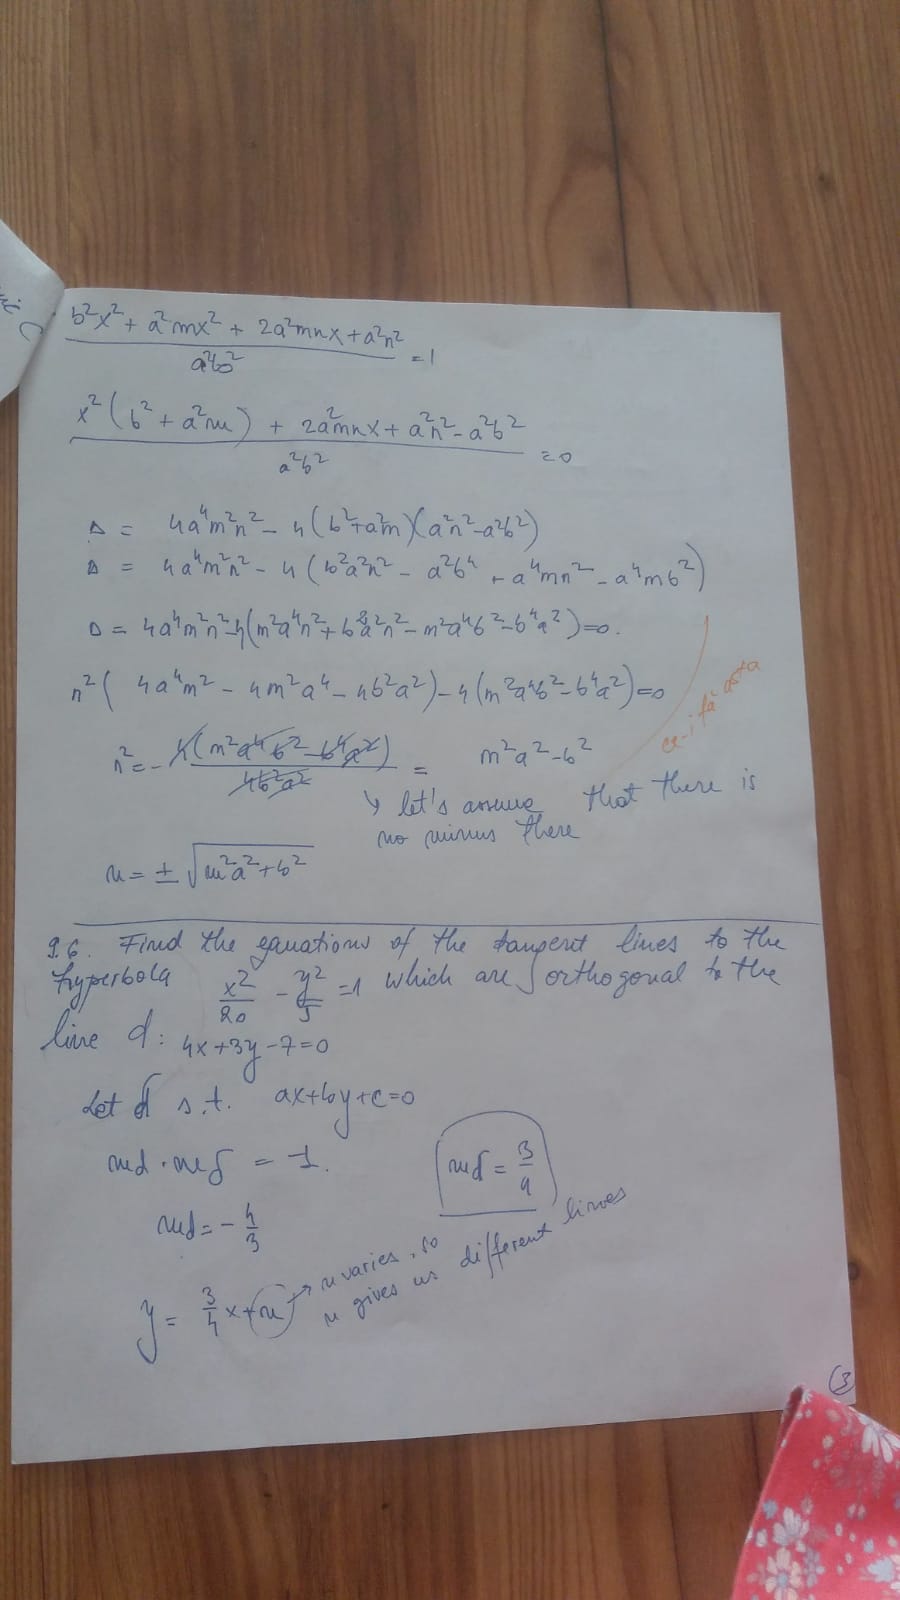 b²x² + a²mx² + 2a²mnx + a²n²
a²b² = 1
x²(b² + a²m) + 2a²mnx + a²n² - a²b²
a²b² = 0
Δ = 4a⁴m²n² - 4(b²+a²m)(a²n²-a²b²)
Δ = 4a⁴m²n² - 4(b²a²n² - a²b⁴ + a⁴mn² - a⁴mb²)
Δ = 4a⁴m²n² - 4(m²a⁴n² + b²a²n² - m²a⁴b² - b⁴a²) = 0.
n²(4a⁴m² - 4m²a⁴ - 4b²a²) - 4(m²a⁴b² - b⁴a²) = 0
ce-i fă asta
n² = - 4(m²a⁴b² - b⁴a²) / 4b²a² = m²a² - b²
↘ let's assume that there is
no minus there
n = ± √m²a² + b²
9.6. Find the equations of the tangent lines to the
hyperbola x²/20 - y²/5 = 1 which are orthogonal to the
line d: 4x+3y-7=0
Let d s.t. ax+by+c=0
md · mδ = -1.
mδ = 3/4
md = - 4/3
y = 3/4 x + n → n varies, so
n gives us different lines
3